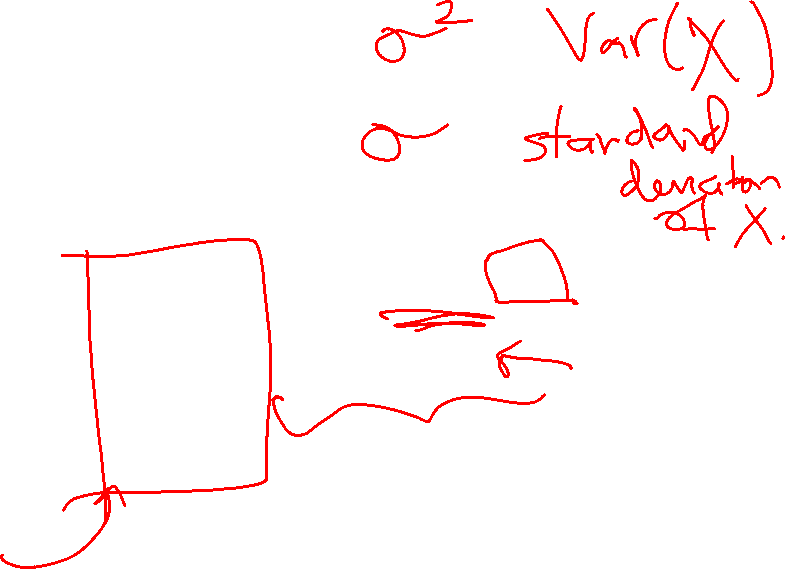 σ² Var(X)
σ standard
deviation
of X.